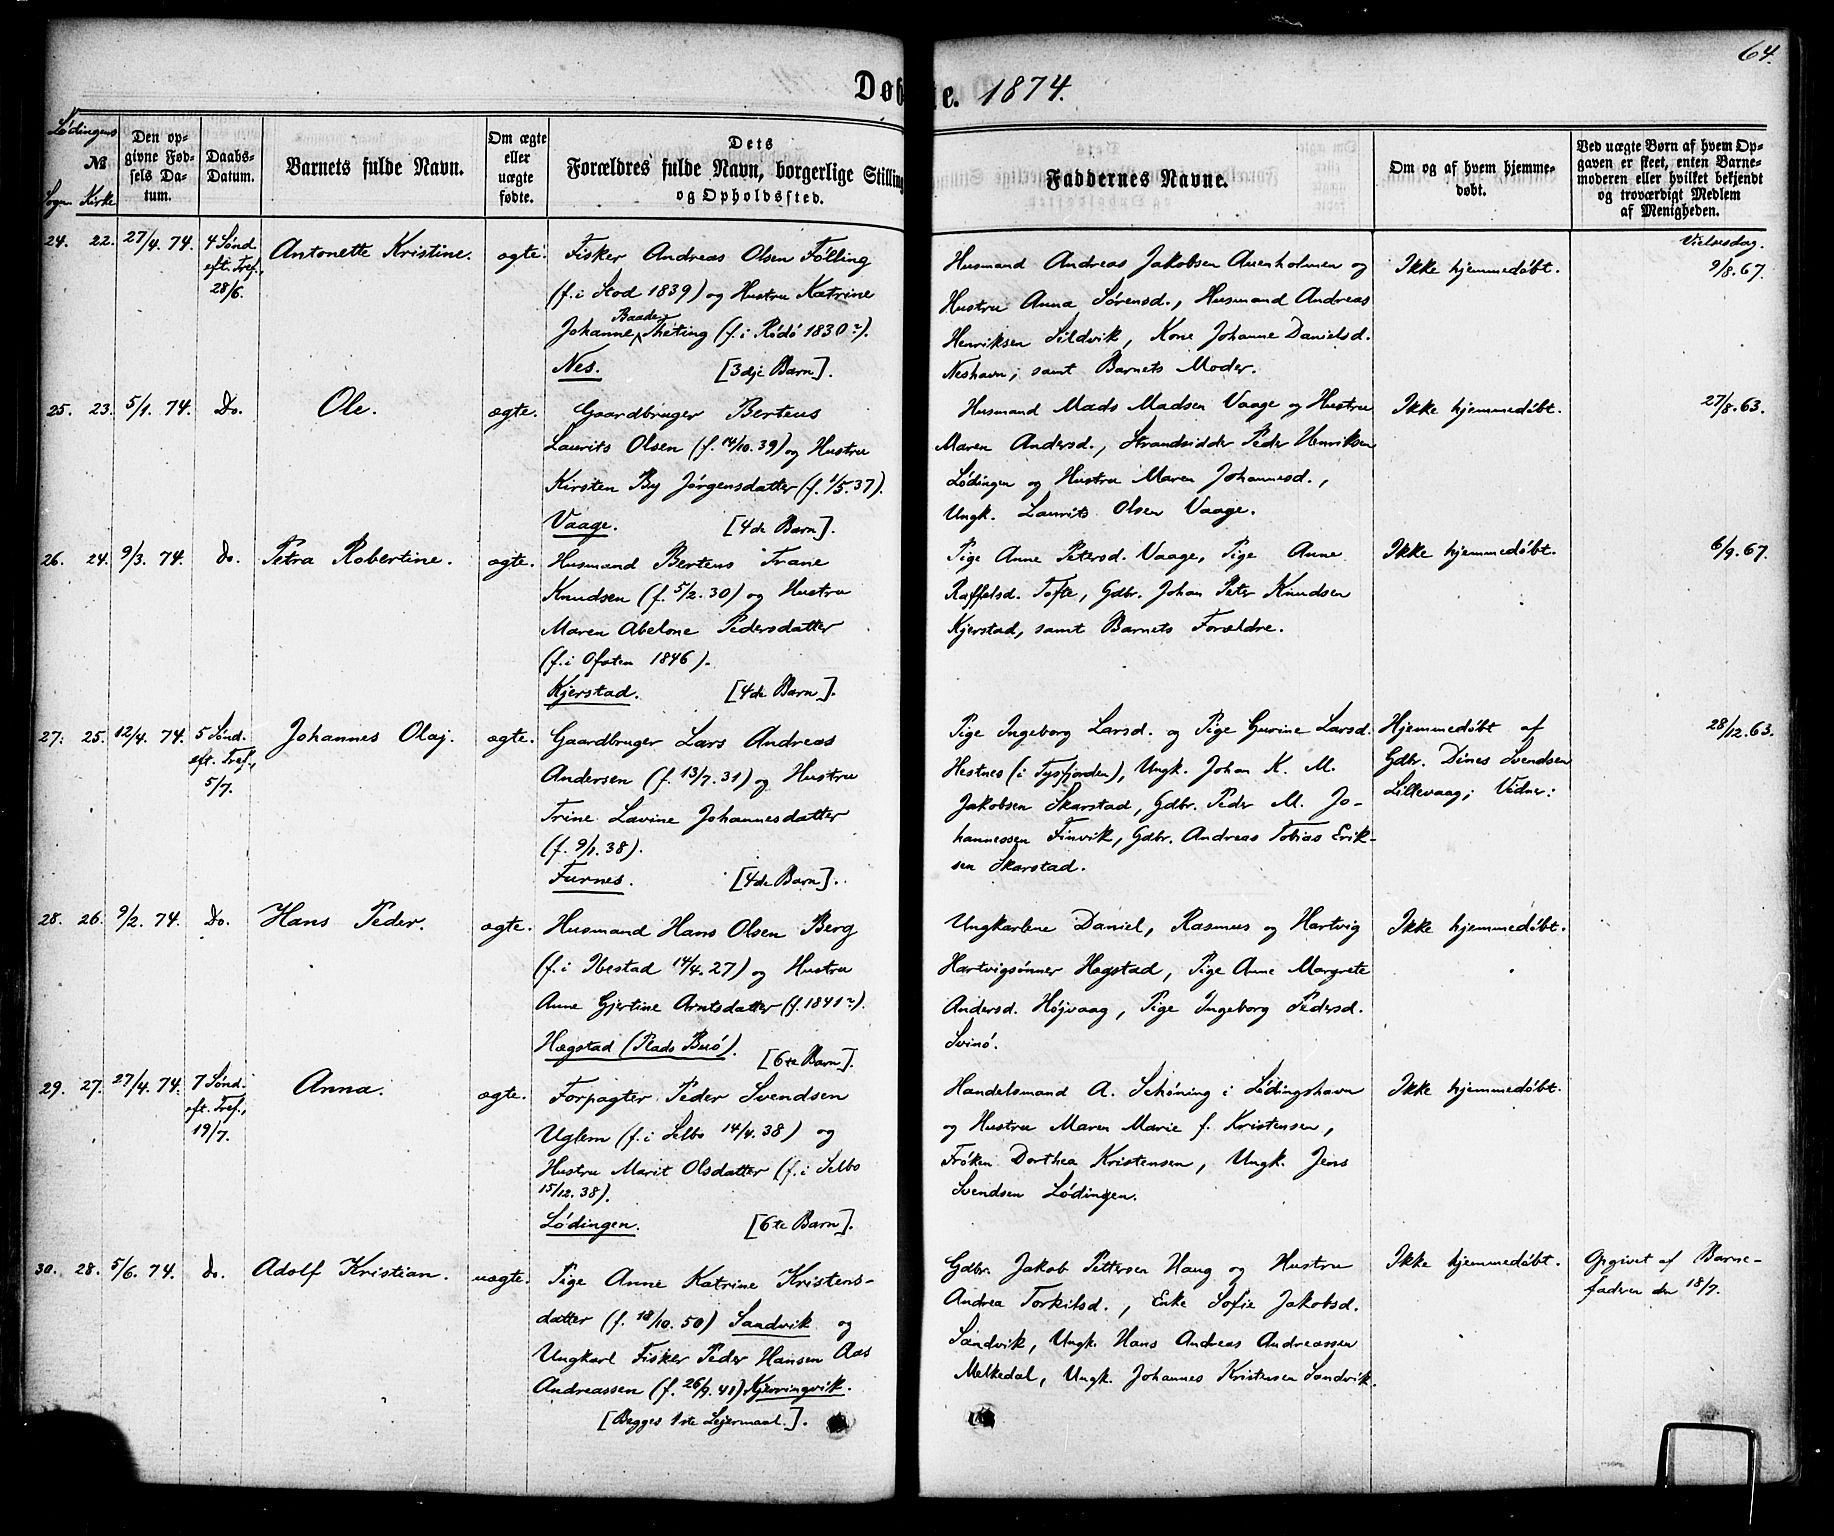 64.
Døbte. 1874.
Lødingens
No
Sogn Kirke
Den op-
givne Fød-
sels Da-
tum.
Daabs-
Datum.
Barnets fulde Navn.
Om ægte
eller
uægte
fødte.
Dets
Forældres fulde Navn, borgerlige Stilling
og Opholdssted.
Faddernes Navne.
Om og af hvem hjemme-
døbt.
Ved uægte Børn af hvem Op-
gaven er skeet, enten Barne-
moderen eller hvilket bekjendt
og troværdigt Medlem
af Menigheden.
24. 22. 27/4. 74. 4 Sønd.
eft. Tref.,
28/6.
Antonette Kristine.
ægte.
Fisker Andreas Olsen Følling
(f. i Stod 1839) og Hustru Katrine
Baader
Johanne Theting (f. i Rødø 1830?).
Nes. [3dje Barn].
Husmand Andreas Jakobsen Auenholmen og
Hustru Anna Sørensd., Husmand Andreas
Henriksen Sildvik, Kone Johanne Danielsd.
Neshavn; samt Barnets Moder.
Ikke hjemmedøbt.
Vielsesdag.
9/8. 67.
25. 23. 5/1. 74. Do.
Ole.
ægte.
Gaardbruger Berteus
Laurits Olsen (f. 14/10. 39) og Hustru
Kirsten By Jørgensdatter (f. 1/5. 37).
Vaage. [4de Barn].
Husmand Mads Madsen Vaage og Hustru
Maren Andersd., Strandsidder Peder Henriksen
Lødingen og Hustru Maren Johannesd.,
Ungk. Laurits Olsen Vaage.
Ikke hjemmedøbt.
27/8. 63.
26. 24. 9/3. 74. Do.
Petra Robertine.
ægte.
Husmand Berteus Frane
Knudsen (f. 5/2. 30) og Hustru
Maren Abelone Pedersdatter
(f. i Ofoten 1846).
Kjerstad. [4de Barn].
Pige Anne Petersd. Vaage, Pige Anne
Raffelsd. Tofte, Gdbr. Johan Peter Knudsen
Kjerstad, samt Barnets Forældre.
Ikke hjemmedøbt.
6/9. 67.
27. 25. 12/4. 74. 5 Sønd.
eft. Tref.,
5/7.
Johannes Olaj.
ægte.
Gaardbruger Lars Andreas
Andersen (f. 13/7. 31) og Hustru
Trine Lavine Johannesdatter
(f. 9/1. 38).
Furnes. [4de Barn].
Pige Ingeborg Larsd. og Pige Gurine Larsd.
Hestnes (i Tysfjorden), Ungk. Johan K. M.
Jakobsen Skarstad, Gdbr. Peder M. Jo-
hannessen Finvik, Gdbr. Andreas Tobias Erik-
sen Skarstad.
Hjemmedøbt af
Gdbr. Dines Svendsen
Lillevaag; Vidner:
28/12. 63.
28. 26. 9/2. 74. Do.
Hans Peder.
ægte.
Husmand Hans Olsen Berg
(f. i Ibestad 14/4. 27) og Hustru
Anne Gjertine Arntsdatter (f. 1841?).
Hægstad (Plads Buø). [6te Barn].
Ungkarlene Daniel, Rasmus og Hartvig
Hartvigsønner Hægstad, Pige Anne Margrete
Andersd. Højvaag, Pige Ingeborg Pedersd.
Svinø.
Ikke hjemmedøbt.
29. 27. 27/4. 74. 7 Sønd.
eft. Tref.,
19/7.
Anna.
ægte.
Forpagter Peder Svendsen
Uglem (f. i Selbo 14/4. 38) og
Hustru Marit Olsdatter (f. i Selbo
15/12. 38).
Lødingen. [6te Barn].
Handelsmand A. Schøning i Lødingshavn
og Hustru Maren Marie f. Kristensen,
Frøken Dorthea Kristensen, Ungk. Jens
Svendsen Lødingen.
Ikke hjemmedøbt.
30. 28. 5/6. 74. Do.
Adolf Kristian.
uægte.
Pige Anne Katrine Kristens-
datter (f. 18/10. 50) Sandvik og
Ungkarl Fisker Peder Hansen Aas
Andreassen (f. 26/9. 41) Kjerringvik.
[Begges 1ste Lejermaal.].
Gdbr. Jakob Pettersen Haug og Hustru
Andrea Torkilsd., Enke Sofie Jakobsd.
Sandvik, Ungk. Hans Andreas Andreassen
Melkedal, Ungk. Johannes Kristensen Sandvik.
Ikke hjemmedøbt.
Opgivet af Barne-
faderen den 18/7.